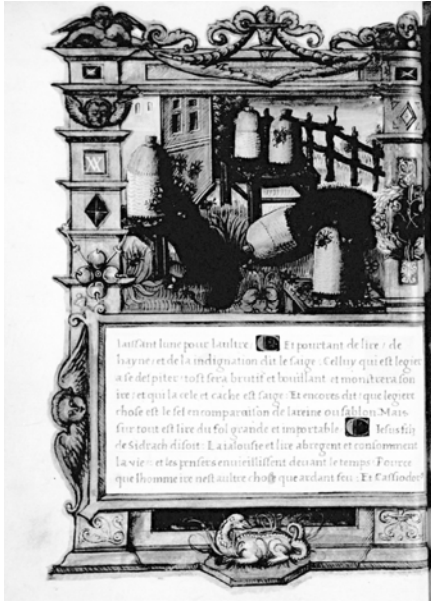 laissant lune pour laultre : Et pourtant de lire : de
hayne : et de la indignation dit le saige : Celluy qui est legier
a se despiter : tost sera brutif et bouillant et monstrera son
ire : et qui la cele et cache est saige Et encores dit : que legiere
chose est le sel en comparaison de lareine ou sablon Mais
sur tout est lire du fol grande et importable Jesus filz
de Sidrach disoit : La ialousie et lire abregent et consomment
la vie : et les pensers enuieillissent deuant le temps : Pource
que lhomme ire nest aultre chose que ardant feu : Et Cassiodore